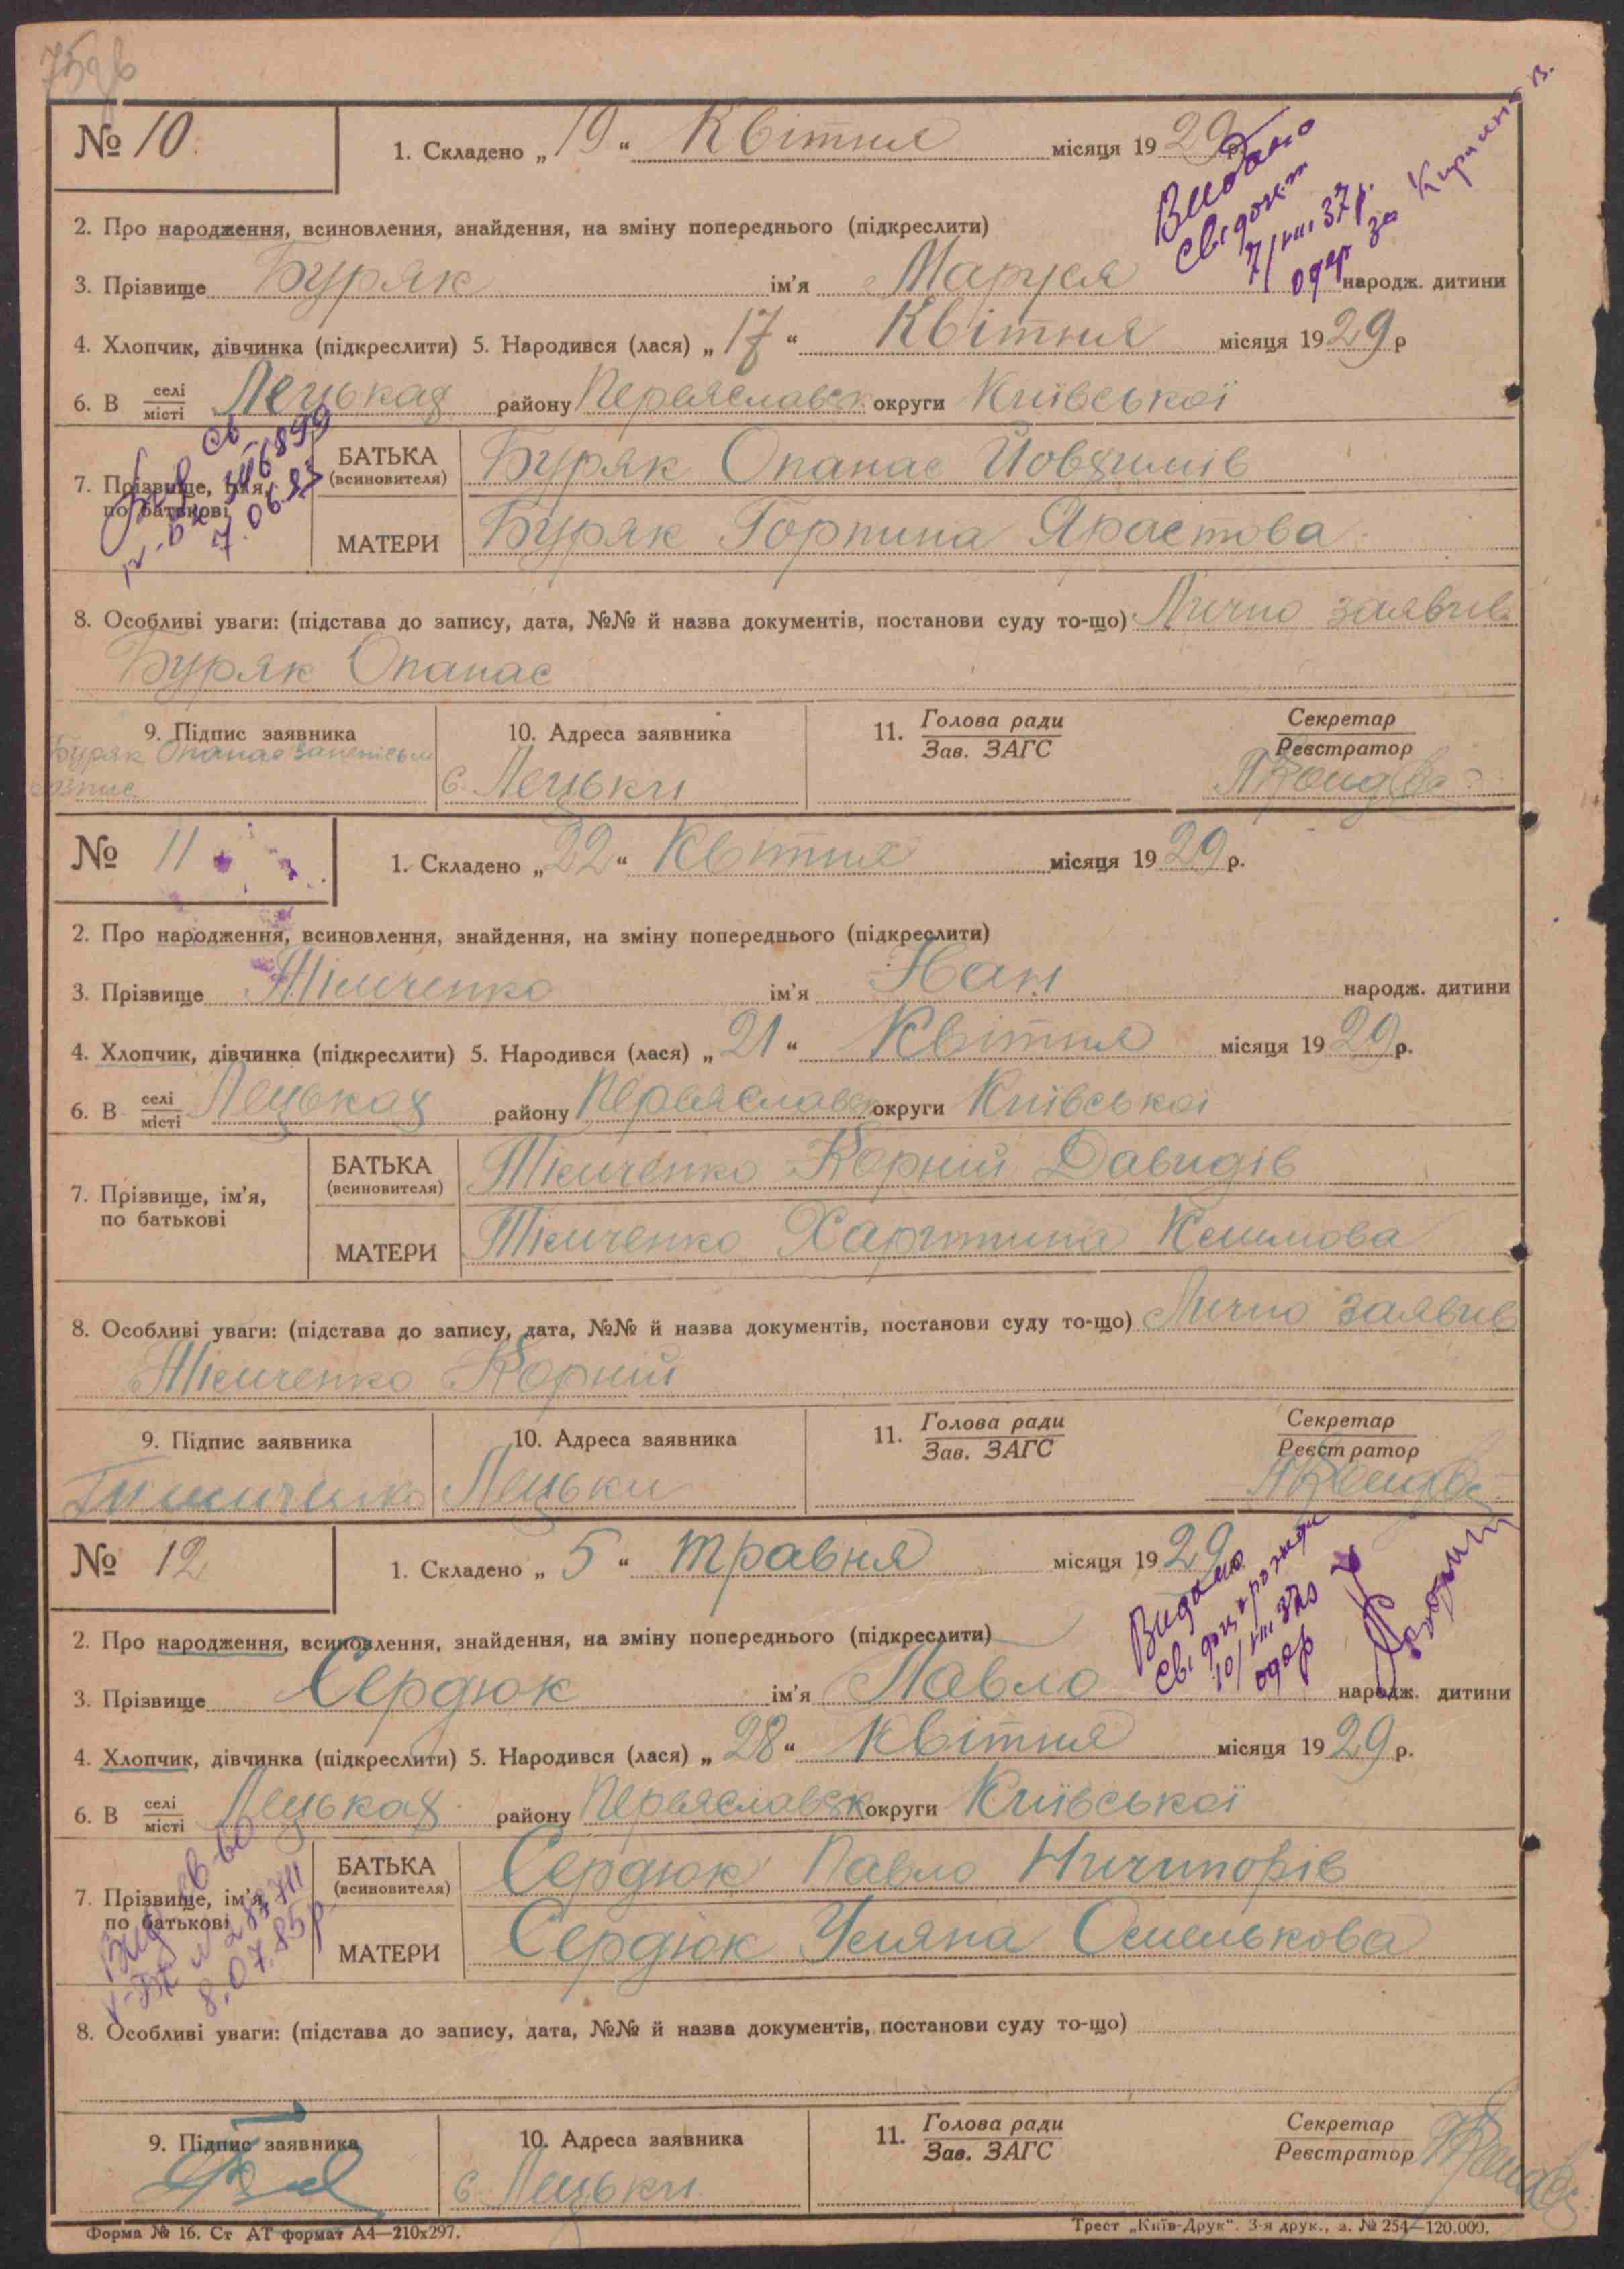 № 10
1. Складено „19“ Квітня місяця 1929 р.
Видано
свідоцт
7/VIII 37 р.
одер за
2. Про народження, всиновлення, знайдення, на зміну попереднього (підкреслити)
3. Прізвище Буряк ім'я Маруся народж. дитини
4. Хлопчик, дівчинка (підкреслити) 5. Народився (лася) „17“ Квітня місяця 1929 р
6. В селі/місті Лецьках району Переяславск округи Київської
7. Прізвище, ім'я, по батькові
БАТЬКА (всиновителя) Буряк Опанас Йовхимів
МАТЕРИ Буряк Горпина
7.06.83
8. Особливі уваги: (підстава до запису, дата, №№ й назва документів, постанови суду то-що) Лично заявив
Буряк Опанас
9. Підпис заявника
Буряк Опанас
10. Адреса заявника
с. Лецьки
11. Голова ради / Зав. ЗАГС
Секретар / Реєстратор
№ 11
1. Складено „22“ Квітня місяця 1929 р.
2. Про народження, всиновлення, знайдення, на зміну попереднього (підкреслити)
3. Прізвище Тімченко ім'я Іван народж. дитини
4. Хлопчик, дівчинка (підкреслити) 5. Народився (лася) „21“ Квітня місяця 1929 р.
6. В селі/місті Лецьках району Переяславск округи Київської
7. Прізвище, ім'я, по батькові
БАТЬКА (всиновителя) Тімченко Корній Давидів
МАТЕРИ Тімченко Харитина
8. Особливі уваги: (підстава до запису, дата, №№ й назва документів, постанови суду то-що) Лично заявив
Тімченко Корній
9. Підпис заявника
10. Адреса заявника
Лецьки
11. Голова ради / Зав. ЗАГС
Секретар / Реєстратор
№ 12
1. Складено „5“ травня місяця 1929
Видано
10/VIII 37 р
одер
2. Про народження, всиновлення, знайдення, на зміну попереднього (підкреслити)
3. Прізвище Сердюк ім'я Павло народж. дитини
4. Хлопчик, дівчинка (підкреслити) 5. Народився (лася) „28“ Квітня місяця 1929 р.
6. В селі/місті Лецьках району Переяславск округи Київської
7. Прізвище, ім'я, по батькові
БАТЬКА (всиновителя) Сердюк Павло Ничипорів
МАТЕРИ Сердюк Уляна Омелькова
8.07.85 р
8. Особливі уваги: (підстава до запису, дата, №№ й назва документів, постанови суду то-що)
9. Підпис заявника
10. Адреса заявника
с. Лецьки
11. Голова ради / Зав. ЗАГС
Секретар / Реєстратор
Форма № 16. Ст АТ формат А4—210х297.
Трест „Київ-Друк“. 3-я друк., з. № 254—120.000.